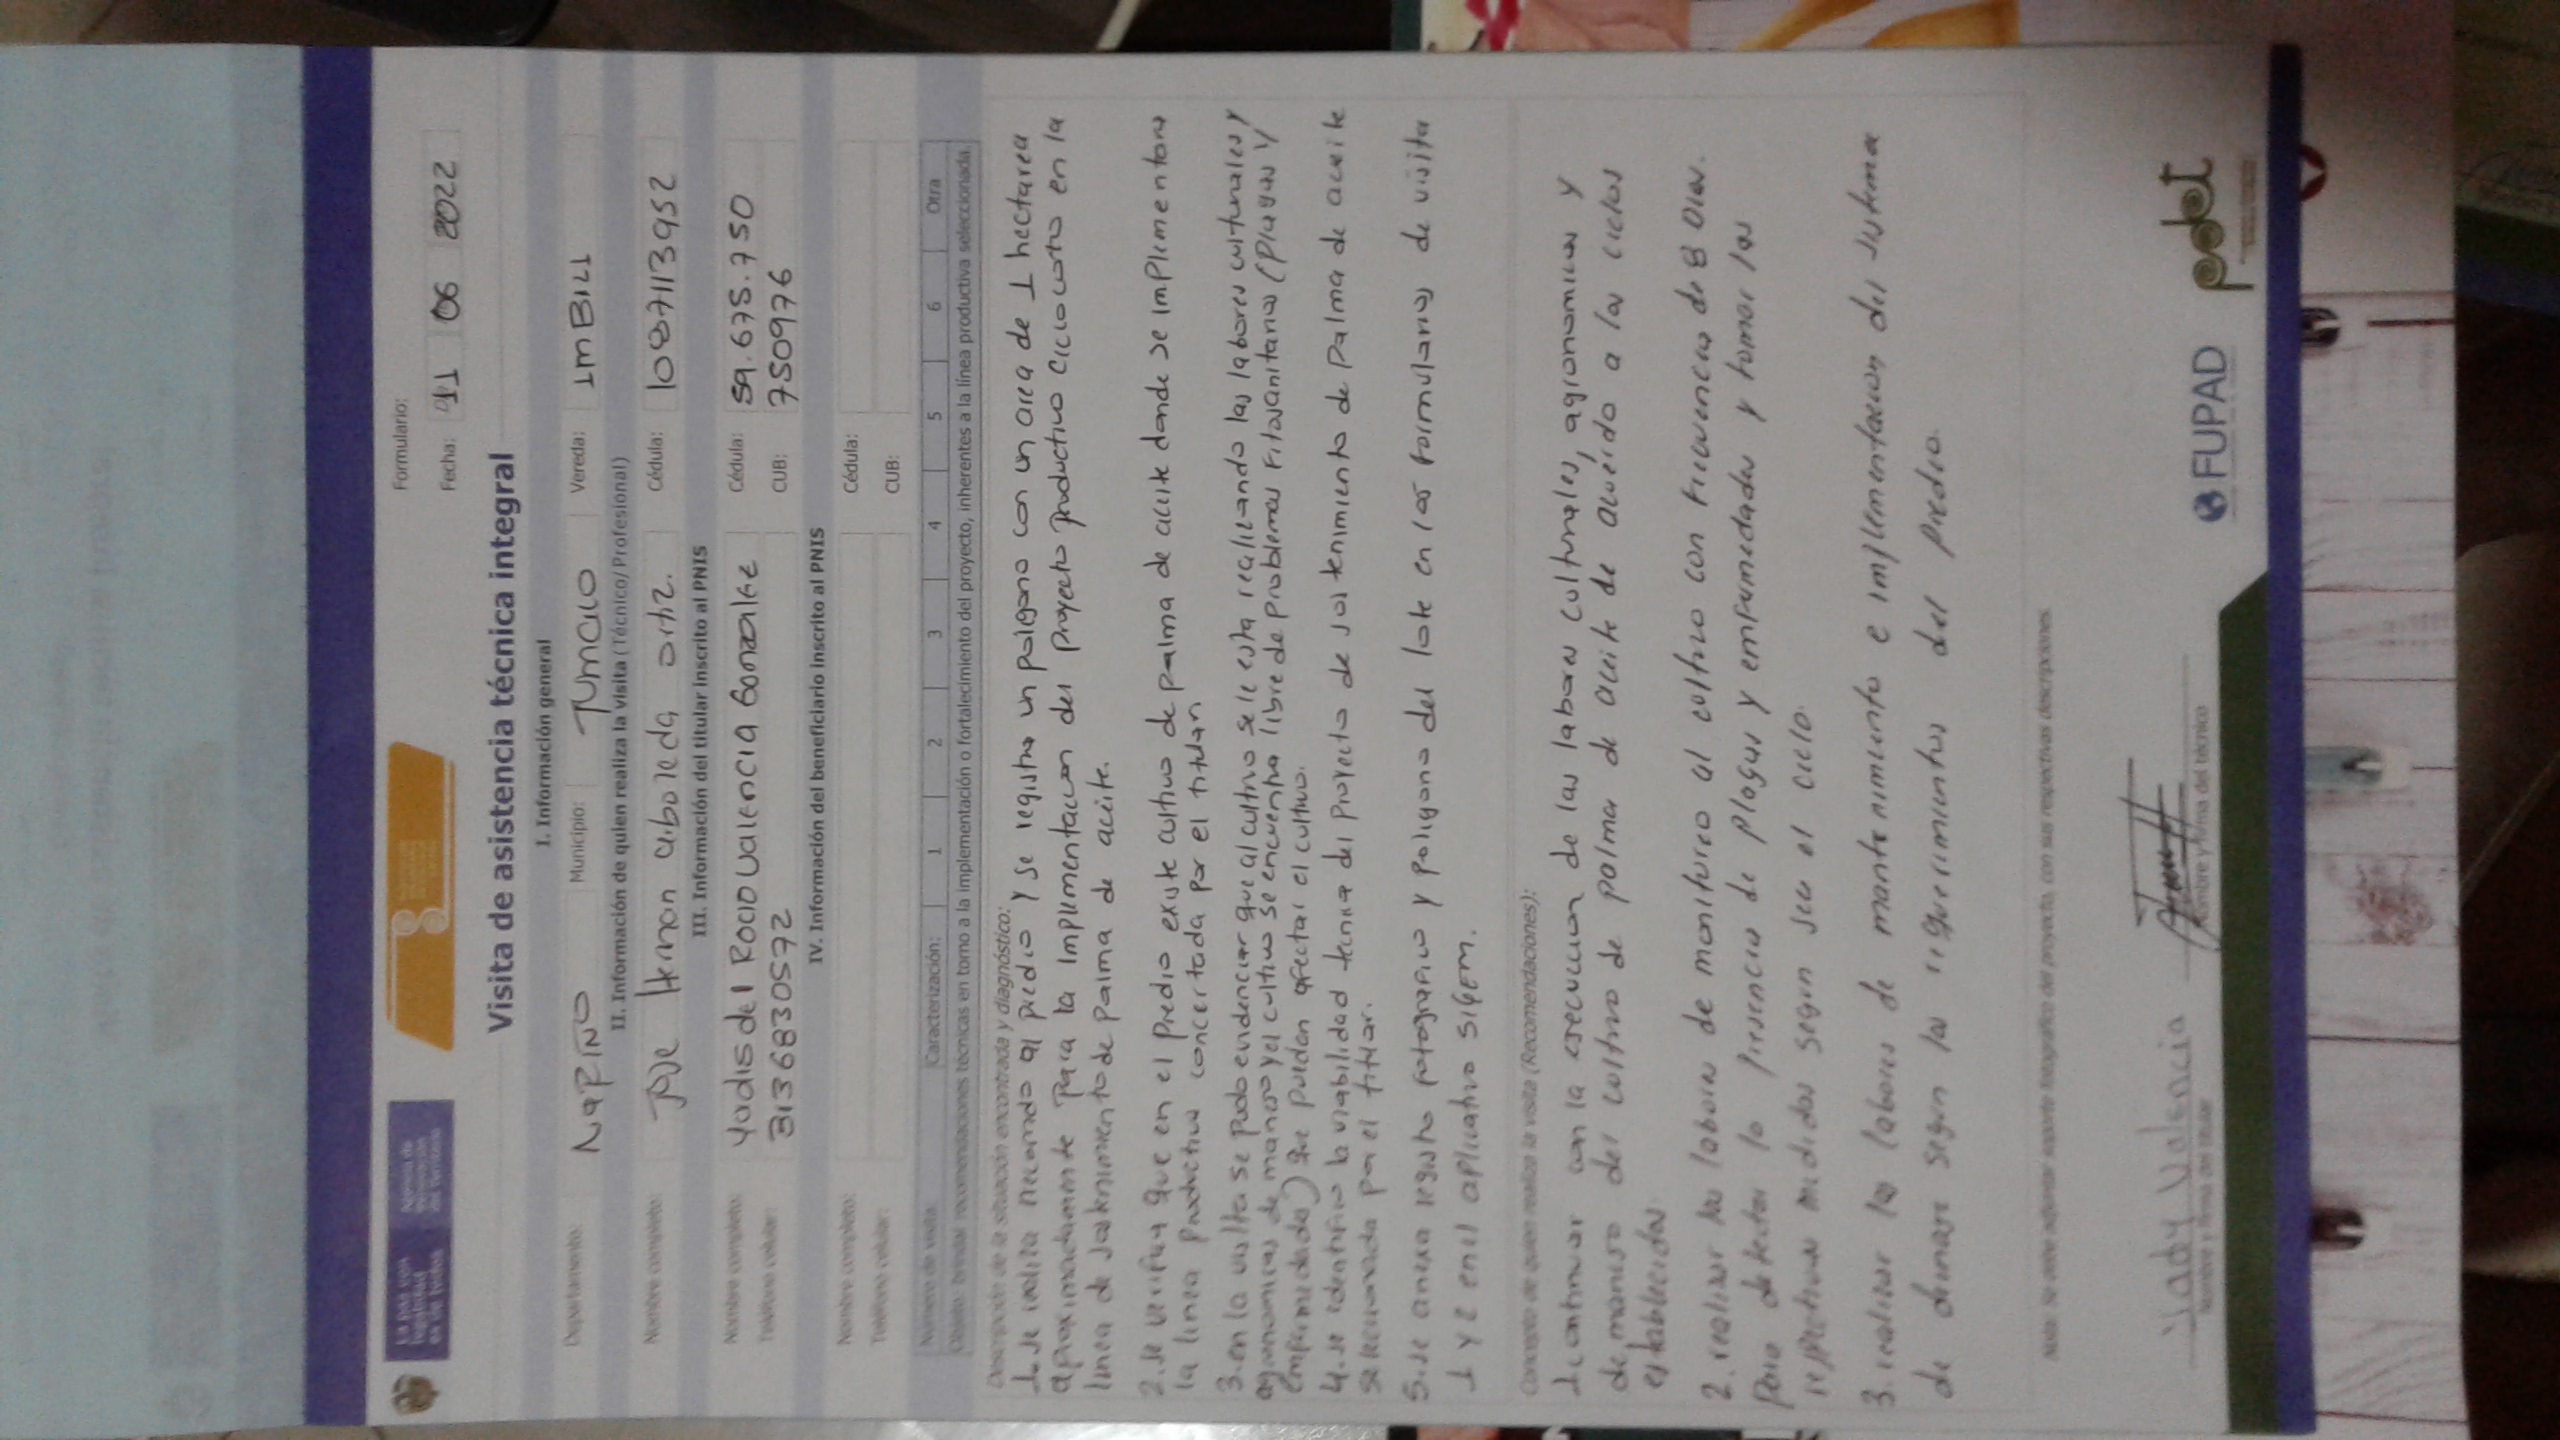 Formulario:
Fecha: 11 06 2022
Visita de asistencia técnica integral
I. Información general
Departamento: NaRIÑO Municipio: TUMaCO Vereda: IMBILI
II. Información de quien realiza la visita (Técnico/Profesional)
Nombre completo: Jose Hernan arboleda ortiz. Cédula: 1087113952
III. Información del titular inscrito al PNIS
Nombre completo: Yadis del Rocio Valencia Gonzalez Cédula: 59.675.750
Teléfono celular: 3136830572 CUB: 750976
IV. Información del beneficiario inscrito al PNIS
Nombre completo: Cédula:
Teléfono celular: CUB:
Número de visita: Caracterización: 1 2 3 4 5 6 Otra
Objeto: brindar recomendaciones técnicas en torno a la implementación o fortalecimiento del proyecto, inherentes a la línea productiva seleccionada.
Descripción de la situación encontrada y diagnóstico:
1. se realiza recorrido al predio y se registra un poligono con un area de 1 hectarea
aproximadamente Para la implementacion del proyecto productivo ciclo corto en la
linea de sostenimiento de palma de aceite.
2. se verifica que en el predio existe cultivo de palma de aceite donde se implementara
la linea productiva concertada por el titular
3. en la visita se pudo evidenciar que al cultivo se le esta realizando las labores culturales y
agronomicas de manejo y el cultivo se encuentra libre de problemas fitosanitarios (plagas y
enfermedades) que puedan afectar el cultivo.
4. se identifico la viabilidad tecnica del proyecto de sostenimiento de palma de aceite
seleccionada por el titular.
5. se anexa registro fotografico y poligono del lote en los formularios de visita
1 y 2 en el aplicativo SIGEM.
Concepto de quien realiza la visita (Recomendaciones):
1. continuar con la ejecucion de las labores culturales, agronomicas y
de manejo del cultivo de palma de aceite de acuerdo a los ciclos
establecidos.
2. realizar las labores de monitoreo al cultivo con frecuencia de 8 dias.
para detectar la presencia de plagas y enfermedades y tomar las
respectivas medidas segun sea el ciclo.
3. realizar las labores de mantenimiento e implementacion del sistema
de drenaje segun los requerimientos del predio.
Nota: Se debe adjuntar soporte fotográfico del proyecto, con sus respectivas descripciones.
Yady Valencia
Nombre y firma del titular
Nombre y firma del técnico
FUPAD
pdet